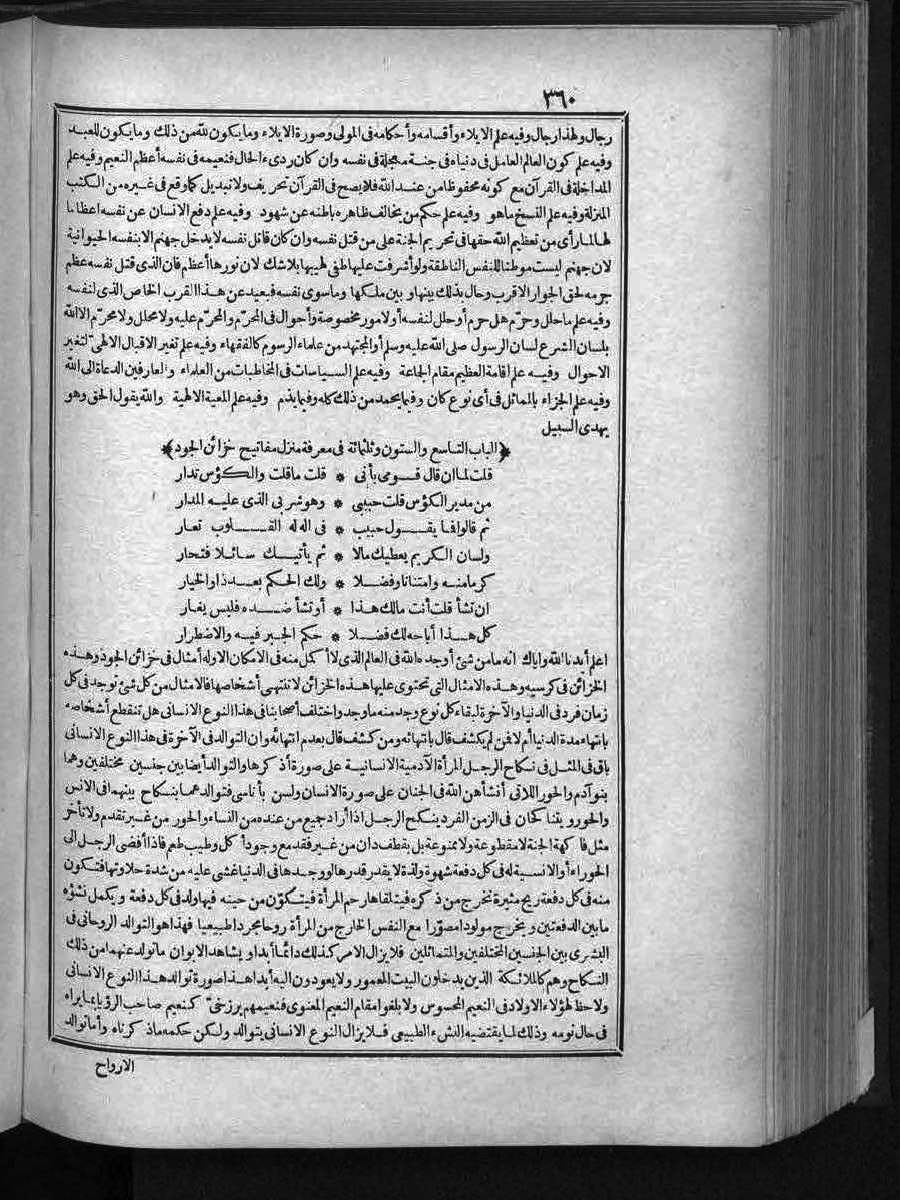 ٣٦٠
رجال ولهذا رجال وفيه علم الايلاء وأقسامه وأحكامه فى المولى وصورة الايلاء وما يكون لله من ذلك وما يكون للعبد
وفيه علم كون العالم العامل فى دنياه فى جنة معجلة فى نفسه وان كان ردىء الحال فنعيمه فى نفسه أعظم النعيم وفيه علم
المداخلة فى القرآن مع كونه محفوظا من عند الله فلا يصح فى القرآن تحريف ولا تبديل كما وقع فى غيره من الكتب
المنزلة وفيه علم النسخ ما هو وفيه علم حكم من يخالف ظاهره باطنه عن شهود وفيه علم دفع الانسان عن نفسه اعظاما
لها لما رأى من تعظيم الله حقها فى تحريم الجنة على من قتل نفسه وان كان قاتل نفسه لا يدخل جهنم الا بنفسه الحيوانية
لان جهنم ليست موطنا للنفس الناطقة ولو أشرفت عليها طفئ لهيبها بلا شك لان نورها أعظم فان الذى قتل نفسه عظم
جرمه لحق الجوار الاقرب وحال بذلك بينها وبين ملكها وما سوى نفسه فبعيد عن هذا القرب الخاص الذى لنفسه
وفيه علم ما حلل وحرّم هل حرم أو حلل لنفسه أو لامور مخصوصة وأحوال فى المحرّم والمحرّم عليه ولا محلل ولا محرّم الا الله
بلسان الشرع لسان الرسول صلى الله عليه وسلم أو المجتهد من علماء الرسوم كالفقهاء وفيه علم تغير الاقبال الالهىّ لتغير
الاحوال وفيه علم اقامة العظيم مقام الجماعة وفيه علم السياسات فى المخاطبات من العلماء والعارفين الدعاة الى الله
وفيه علم الجزاء بالمماثل فى أى نوع كان وفيما يحمد من ذلك كله وفيما يذم وفيه علم المعية الالهية والله يقول الحق وهو
يهدى السبيل
﴿الباب التاسع والستون وثلثمائة فى معرفة منزل مفاتيح خزائن الجود﴾
قلت لما ان قال قومى بأنى * قلت ما قلت والكؤس تدار
من مدير الكؤس قلت حبيبى * وهو شربى الذى عليه المدار
ثم قالوا فما يقول حبيب * فى اله له القلوب تعار
ولسان الكريم يعطيك مالا * ثم يأتيك سائلا فتحار
كرما منه وامتنانا وفضلا * ولك الحكم بعد ذا والخيار
ان تشأ قلت أنت مالك هذا * أو تشأ ضده فليس يغار
كل هذا أباحه لك فضلا * حكم الجبر فيه والاضطرار
اعلم أيدنا الله واياك انه ما من شئ أوجده الله فى العالم الذى لا أكمل منه فى الامكان الا وله أمثال فى خزائن الجود وهذه
الخزائن فى كرسيه وهذه الامثال التى تحتوى عليها هذه الخزائن لا تنتهى أشخاصها فالامثال من كل شئ توجد فى كل
زمان فرد فى الدنيا والآخرة لبقاء كل نوع وجد منه ما وجد واختلف أصحابنا فى هذا النوع الانسانى هل تنقطع أشخاصه
بانتهاء مدة الدنيا أم لا فمن لم يكشف قال بانتهائه ومن كشف قال بعدم انتهائه وان التوالد فى الآخرة فى هذا النوع الانسانى
باق فى المثل فى نكاح الرجل المرأة الآدمية الانسانية على صورة أذكرها والتوالد أيضا بين جنسين مختلفين وهما
بنو آدم والحور اللاتى أنشأهن الله فى الجنان على صورة الانسان ولسن بأناسى فتوالدهما بنكاح بينهما فى الانس
والحور ويتناكحان فى الزمن الفرد ينكح الرجل اذا أراد جميع من عنده من النساء والحور من غير تقدم ولا تأخر
مثل فاكهة الجنة لا مقطوعة ولا ممنوعة بل بقطف دان من غير فقد مع وجود أكل وطيب طعم فاذا أفضى الرجل الى
الحوراء أو الانسية له فى كل دفعة شهوة ولذة لا يقدر قدرها لو وجدها فى الدنيا غشى عليه من شدة حلاوتها فتكون
منه فى كل دفعة ريح مثيرة تخرج من ذكره فيتلقاها رحم المرأة فيتكوّن من حينه فيها ولد فى كل دفعة ويكمل نشؤه
ما بين الدفعتين ويخرج مولودا مصوّرا مع النفس الخارج من المرأة روحا مجردا طبيعيا فهذا هو التوالد الروحانى فى
البشرى بين الجنسين المختلفين والمتماثلين فلا يزال الامر كذلك دائما أبدا ويشاهد الابوان ما تولد عنهما من ذلك
النكاح وهم كالملائكة الذين يدخلون البيت المعمور ولا يعودون اليه أبدا هذا صورة توالد هذا النوع الانسانى
ولا حظ لهؤلاء الاولاد فى النعيم المحسوس ولا بلغوا مقام النعيم المعنوى فنعيمهم برزخىّ كنعيم صاحب الرؤيا بما يراه
فى حال نومه وذلك لما يقتضيه النشء الطبيعى فلا يزال النوع الانسانى يتوالد ولكن حكمه ما ذكرناه وأما توالد
الارواح